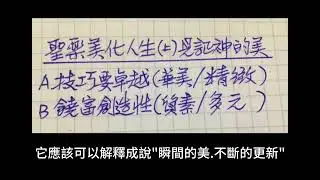 聖樂美化人生(上)見証神的美
A.技巧要卓越(華美/精緻)
B 饒富創造性(質素/多元)
它應該可以解釋成說"瞬間的美.不斷的更新"